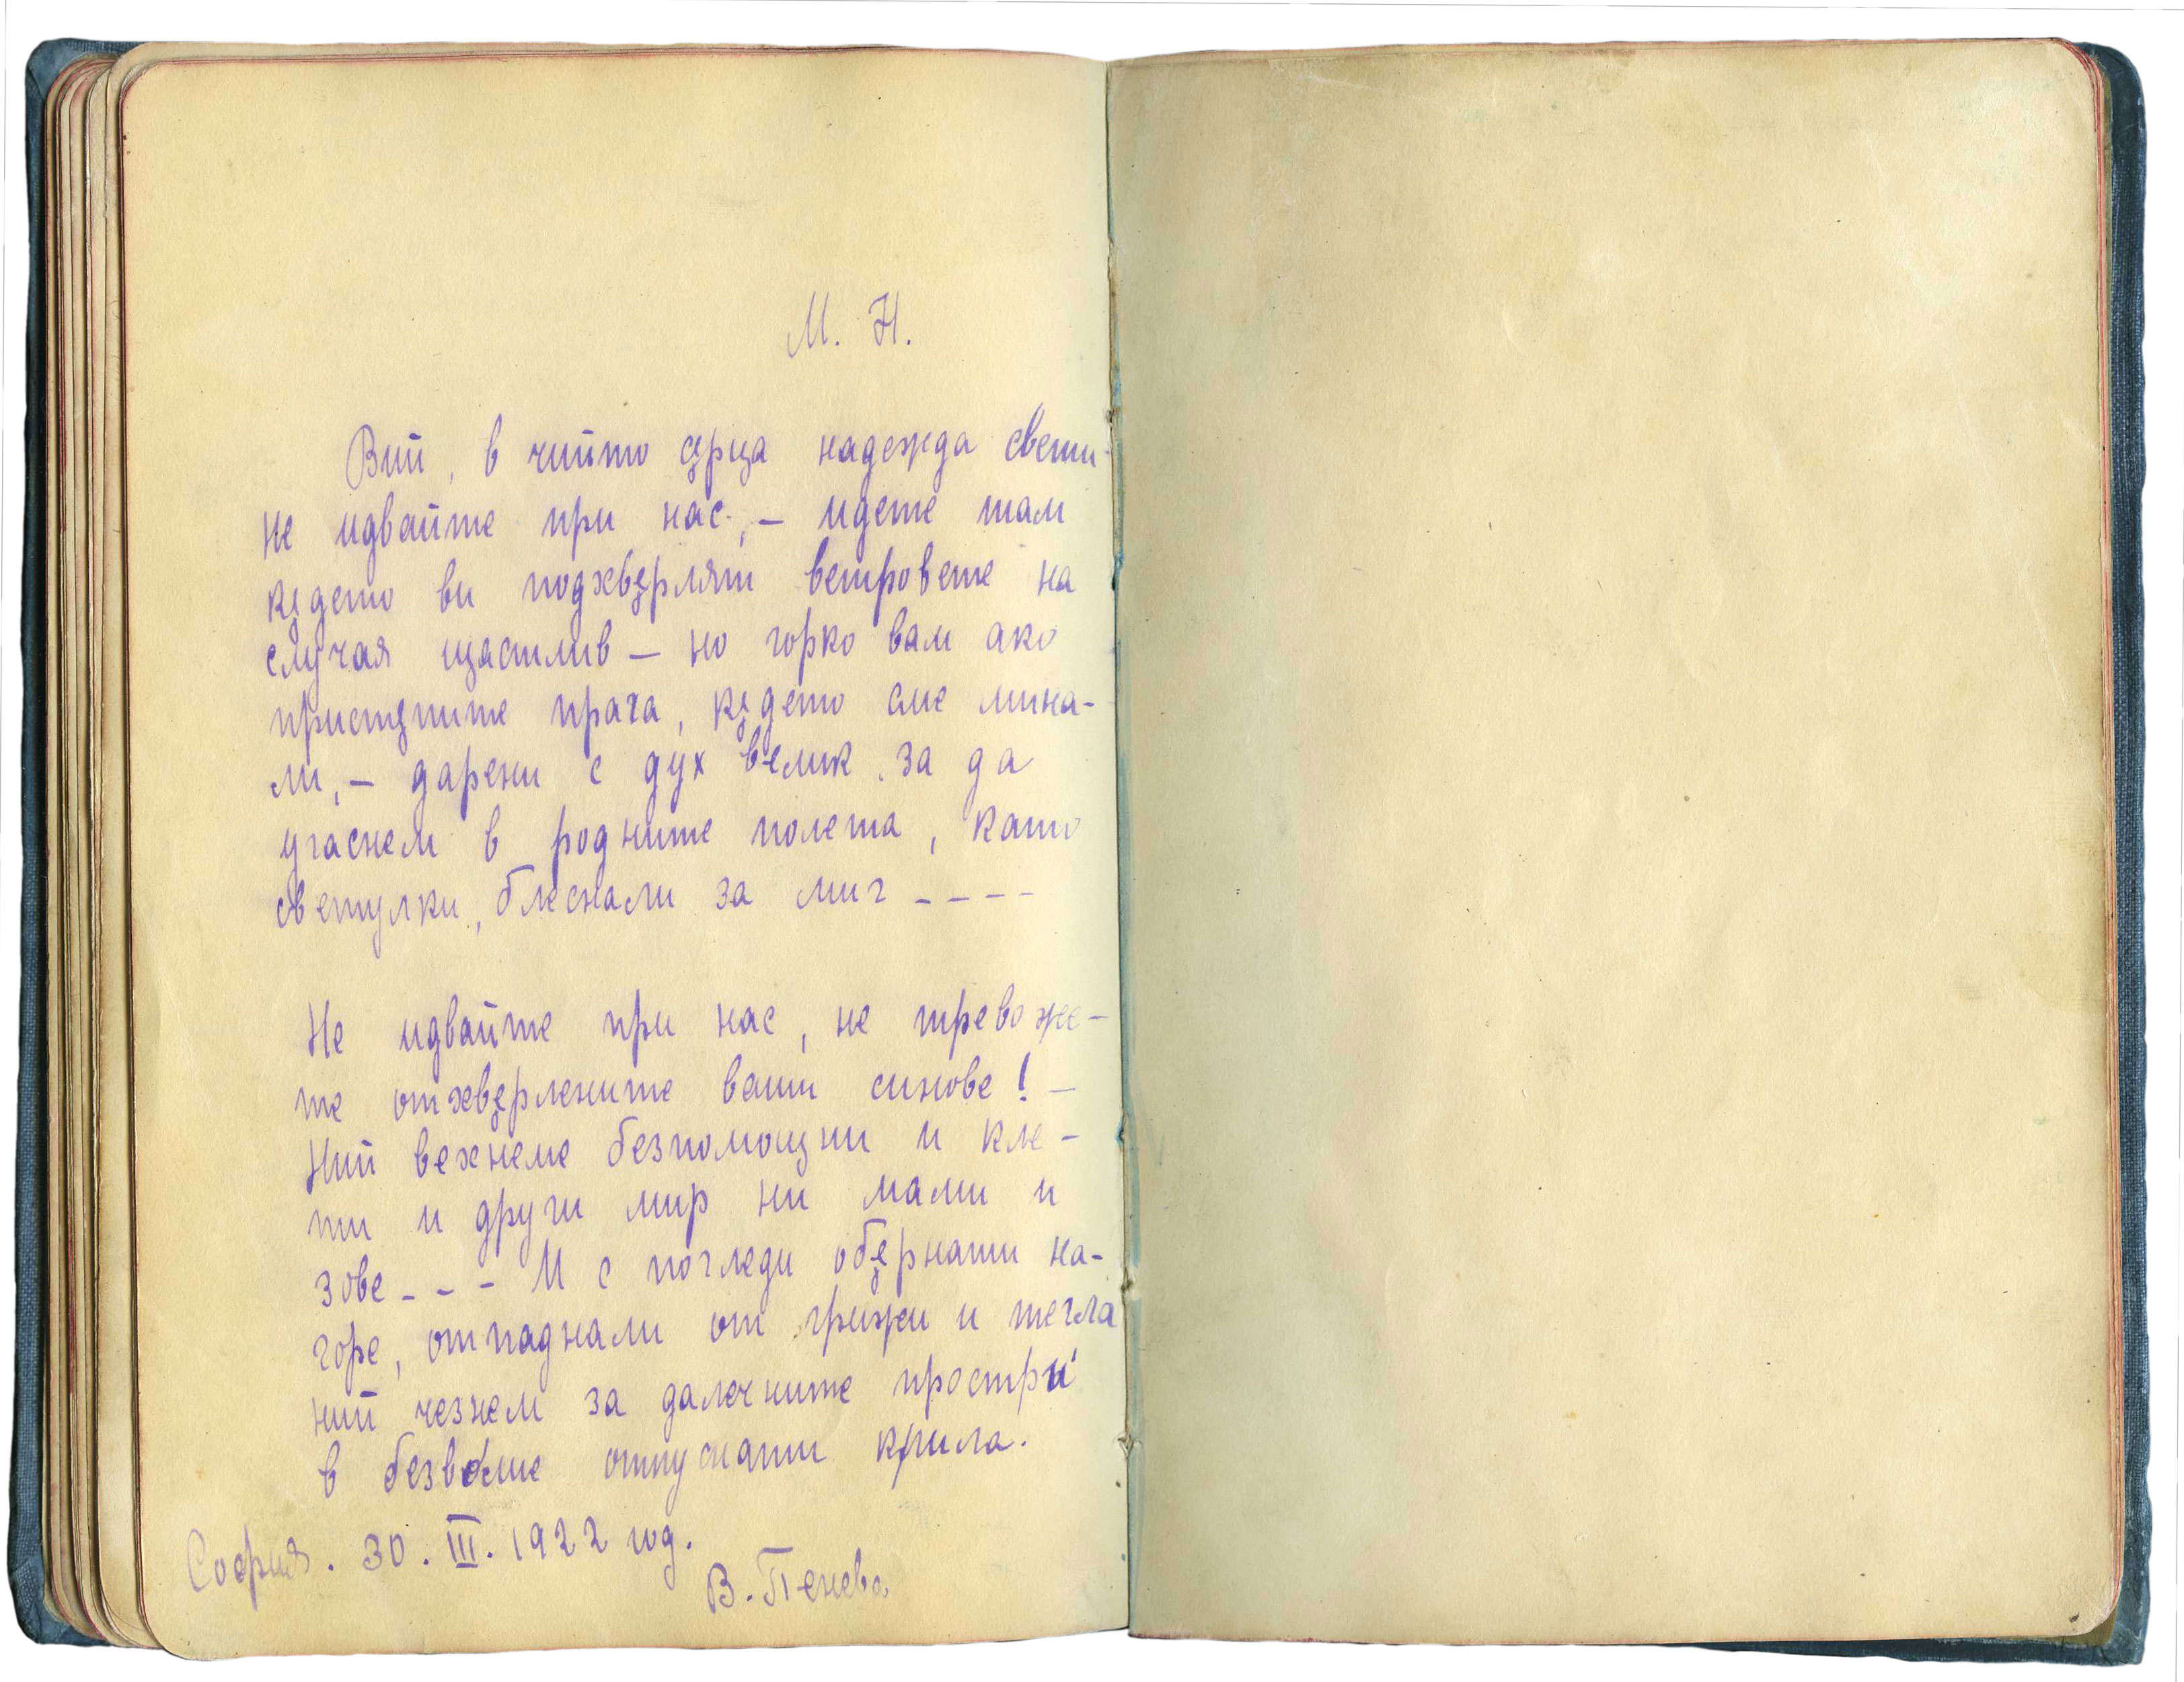 М. Н.
Вий, в чийто сѫрца надежда свети-
не идвайте при нас, – идете там
кѫдето ви подхвѫрлят ветровете на
случая щастлив – но горко вам ако
пристѫпите прага, кѫдето сме мина-
ли, – дарени с дух велик за да
угаснем в родните полета, като
светулки, блеснали за миг – – – –
Не идвайте при нас, не тревоже-
те отхвѫрлените ваши синове! –
Ний вехнеме безпомощни и кле-
ти и други мир ни мами и
зове – – – И с погледи обѫрнати на-
горе, отпаднали от грижи и тегла
ний чезнем за далечните простри
в безволие отпуснати крила.
София. 30. III. 1922 год.
В. Пенева